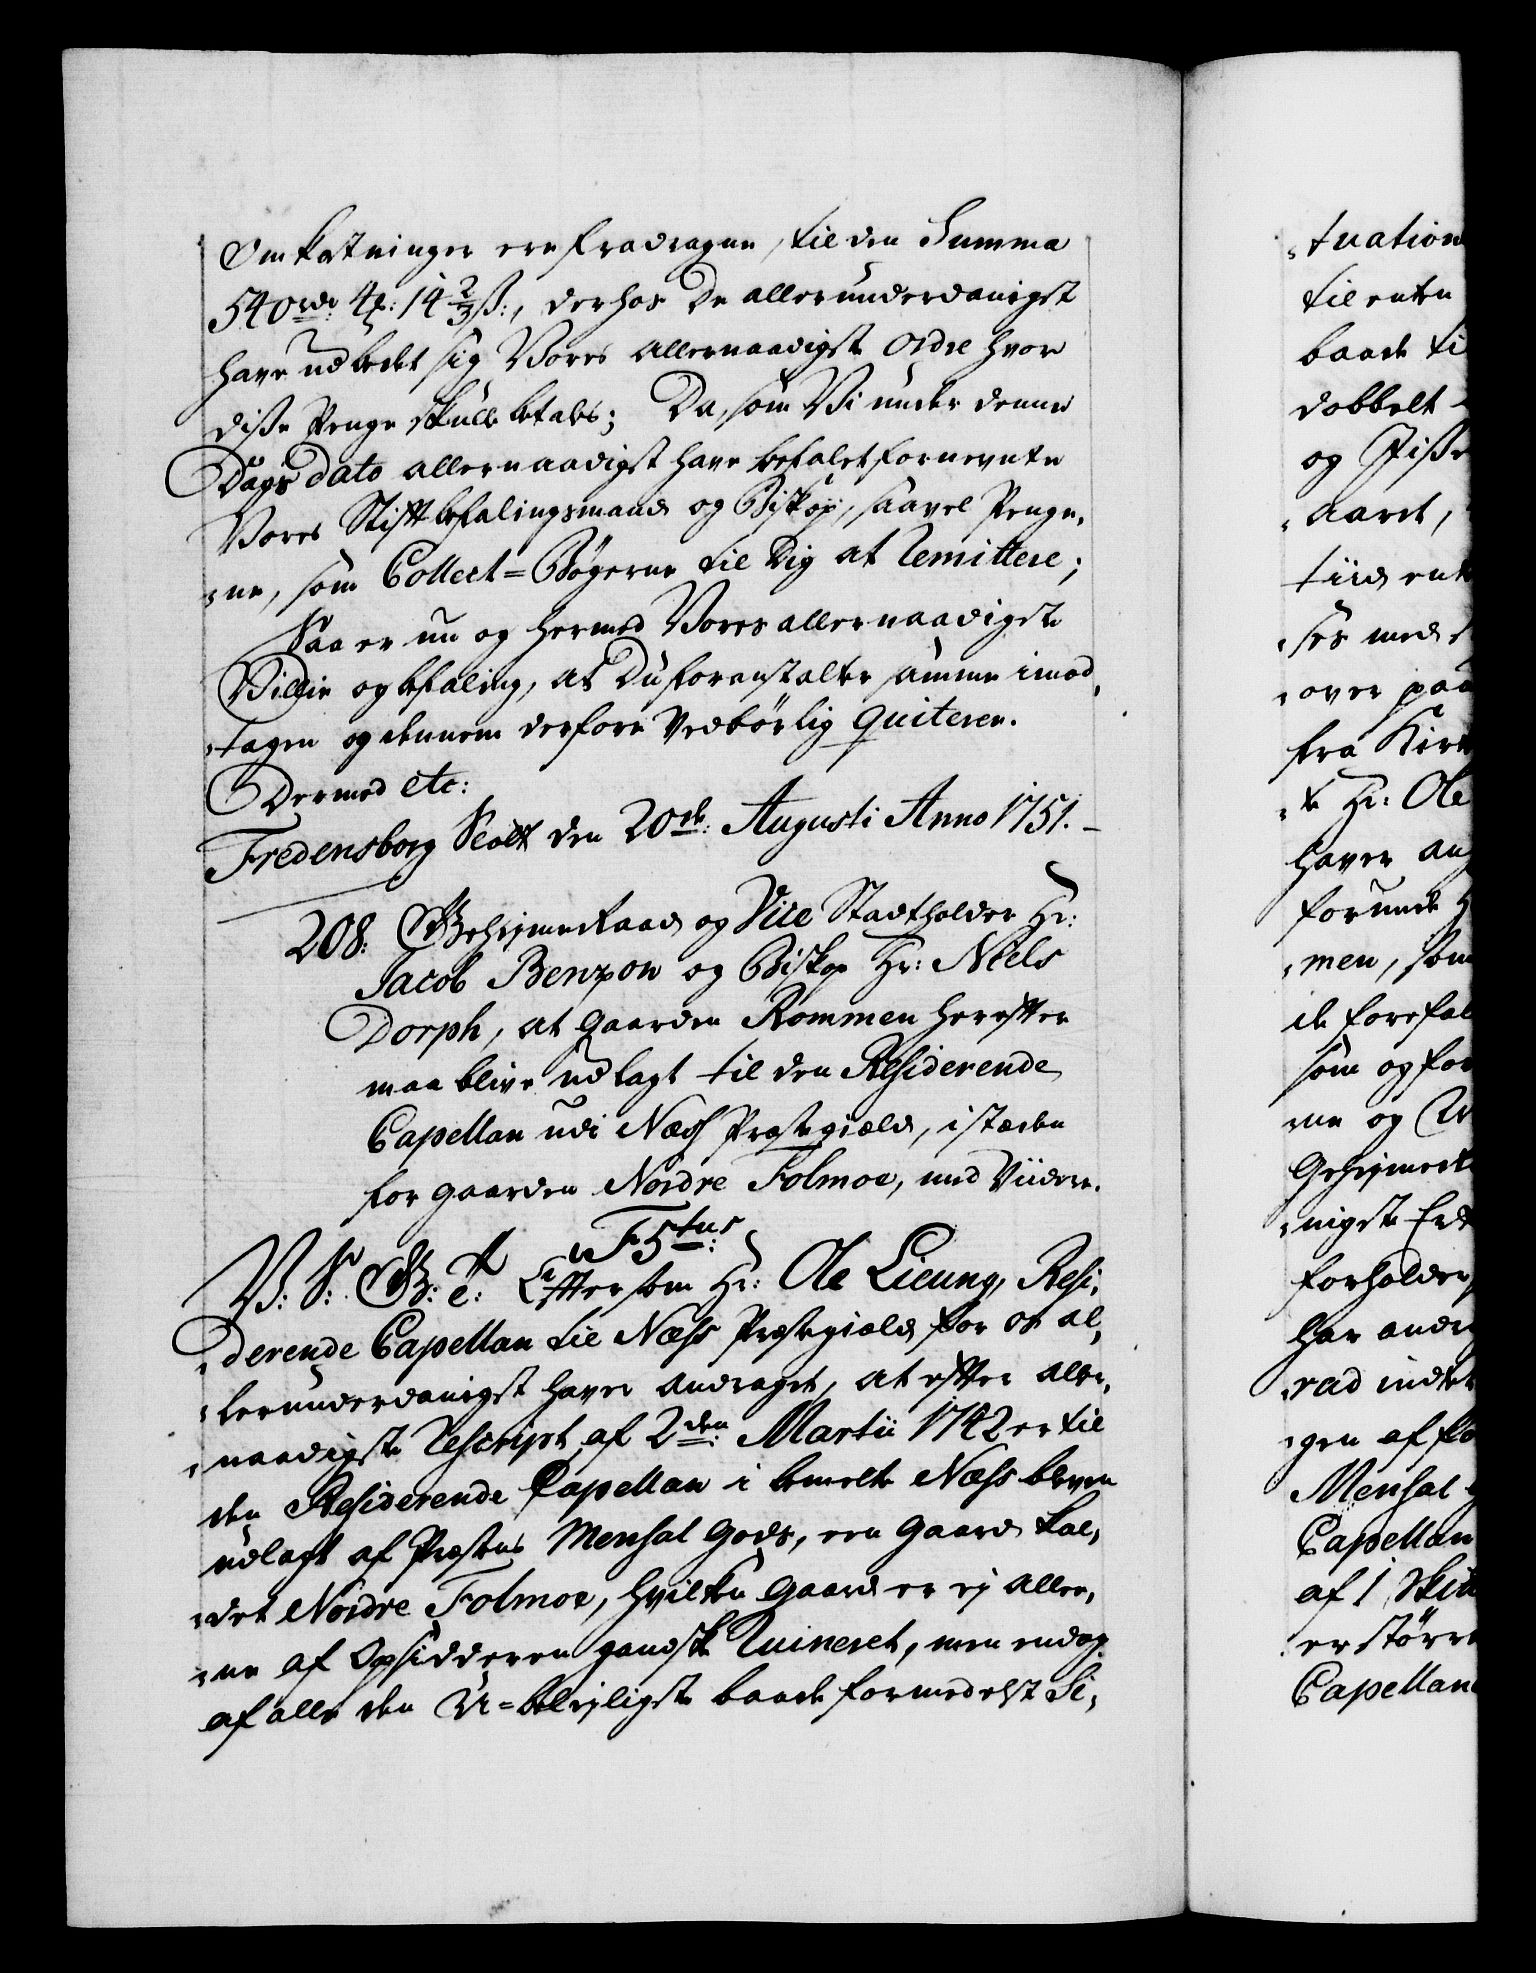 Omkostninger ere fradragne, til den Summa
540 rdr: 4 ℳ: 14 2/3 ß:, derhos De allerunderdanigst
have udbedet sig Vores allernaadigste Ordre hvor
disse Penge skulle betales; Da, som Vi under denne
Dags dato allernaadigst have befalet fornevnte
Vores Stiftbefalingsmand og Biskop, saavel Penge,
,ne, som Collect=Bøgerne til Dig at remittere;
Saa er nu og hermed Vores allernaadigste
Villie og befaling, at Du foranstalter samme imod,
,tagen og dennem derfore Vedbørlig quiterer.
Dermed etc:
Fredensborg Slott den 20de: Augusti Anno 1751. –
208. Geheimeraad og Vice Stadtholder Hr:
Jacob Benzon og Biskop Hr: Niels
Dorph, at Gaarden Rommen herefter
maa blive udlagt til den Residerende
Capellan udi Næss Præstegield, i stæden
for gaarden Nordre Folmoe, med Viidere.
F5tus
V: S: G: T: Eftersom Hr: Ole Lieung, Resi,
,derende Capellan til Næss Præstegield for os al,
,lerunderdanigst haver andraget, at efter aller,
,naadigste Rescript af 2den: Martii 1742 er til
den Residerende Capellan i bemelte Næss bleven
udlagt af Præstens Mensal Gods, een Gaard kal,
,det Nordre Folmoe, hvilken Gaard er ej aller,
,ne af Opsidderen gandske Ruineret, men endog
af alle den U=beleiligste baade formedelst Si,
,tuation
til enten
baade ti
dobbelt
og Fiske
,aaret,
tiid ent
,ses med
,over paa
fra Kirk
,te Hr: Ole
haver an
forunde H
,men, som
de forefal
som og for
,ne og W
GeheimeR
,nigste Erk
forholder,
har andr
,rad indtr
,gen af fo
Mensal
Capellan
af 1 Skit
er større
Capellan